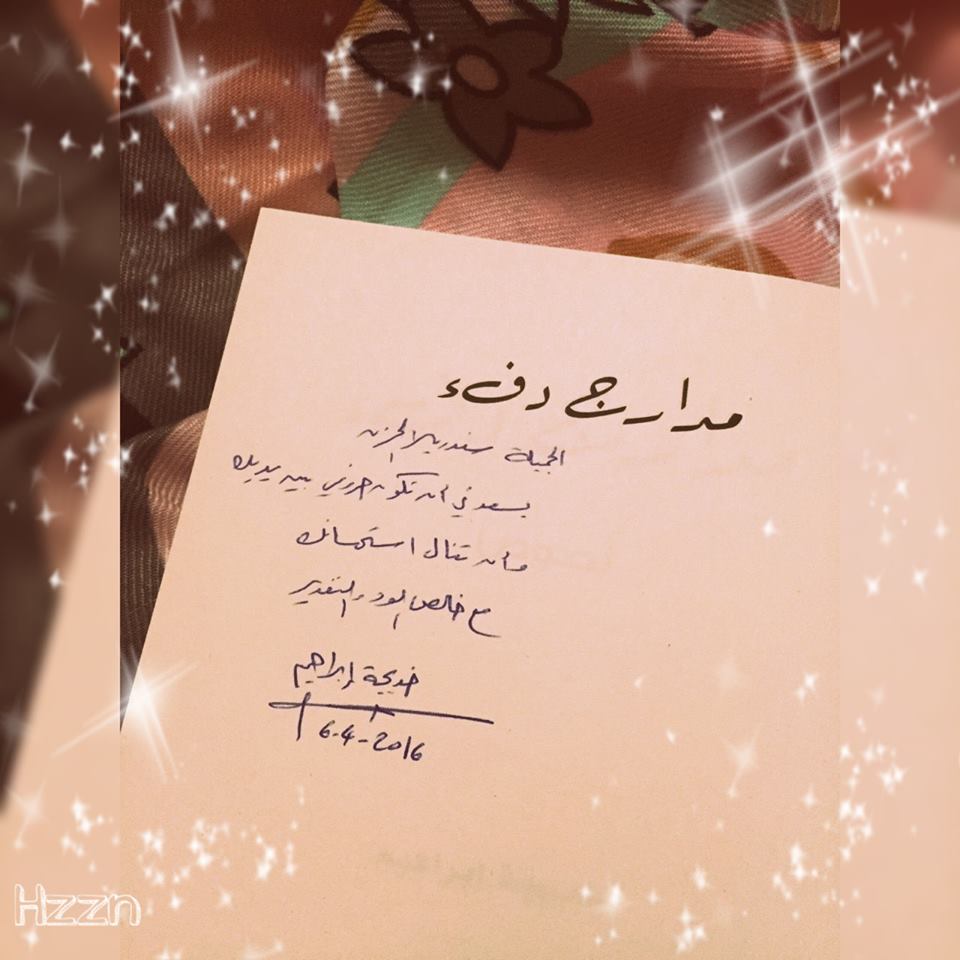 مدارج دفء
الجميلة سندريلا الحزن
يسعدني أن تكون حروفي بين يديك
وأن تنال استحسانك
مع خالص الود والتقدير
خديجة إبراهيم
6-4-2016
Hzzn